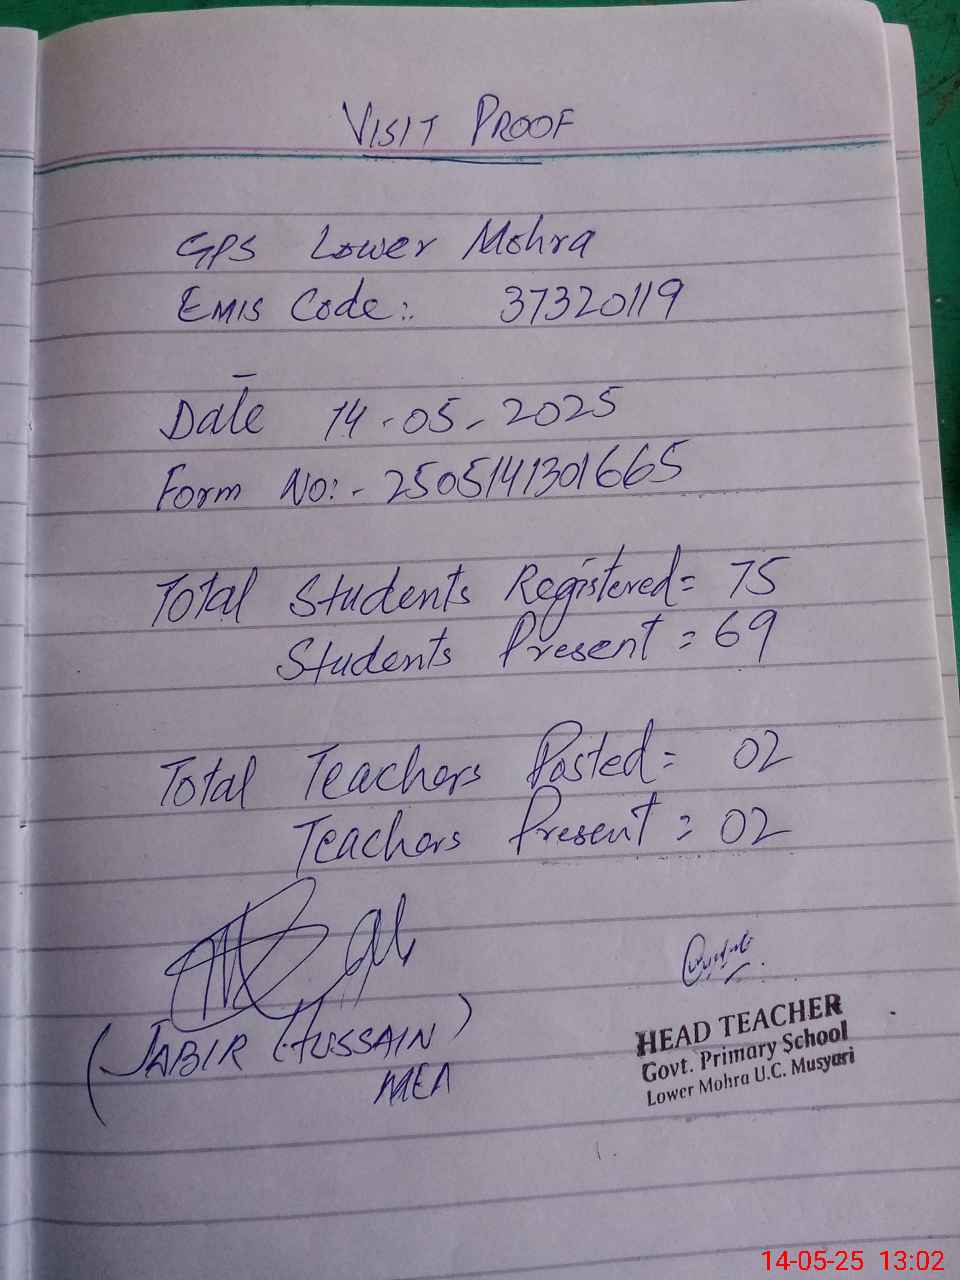 VISIT PROOF
GPS Lower Mohra
EMIS Code:. 37320119
Date 14-05-2025
Form No:- 2505141301665
Total Students Registered= 75
Students Present = 69
Total Teachers Posted= 02
Teachers Present = 02
(JABIR HUSSAIN)
MEA
HEAD TEACHER
Govt. Primary School
Lower Mohra U.C. Musyari
14-05-25 13:02